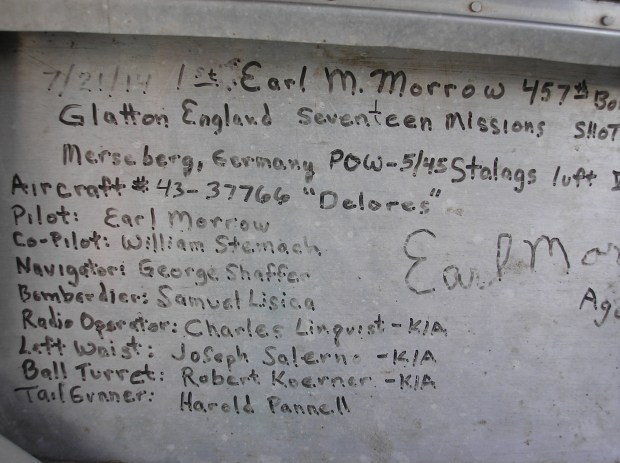 7/21/14 1st. Earl M. Morrow 457th Bo
Glatton England Seventeen Missions SHOT
Merseberg, Germany POW-5/45 Stalags luft I
Aircraft # 43-37766 "Delores"
Pilot: Earl Morrow
Co-Pilot: William Stemach
Navigator: George Shaffer
Bombardier: Samuel Lisica
Radio Operator: Charles Linquist - KIA
Left Waist: Joseph Salerno - KIA
Ball Turret: Robert Koerner - KIA
Tail Gunner: Harold Pannell
Earl Mor
Age